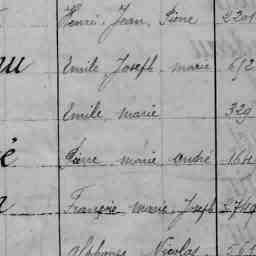 Henri, Jean, Pierre 2201
au Emile Joseph marie 692
Emile marie 329
é Pierre marie André 164
François marie Joseph 2749
Alphonse Nicolas 561